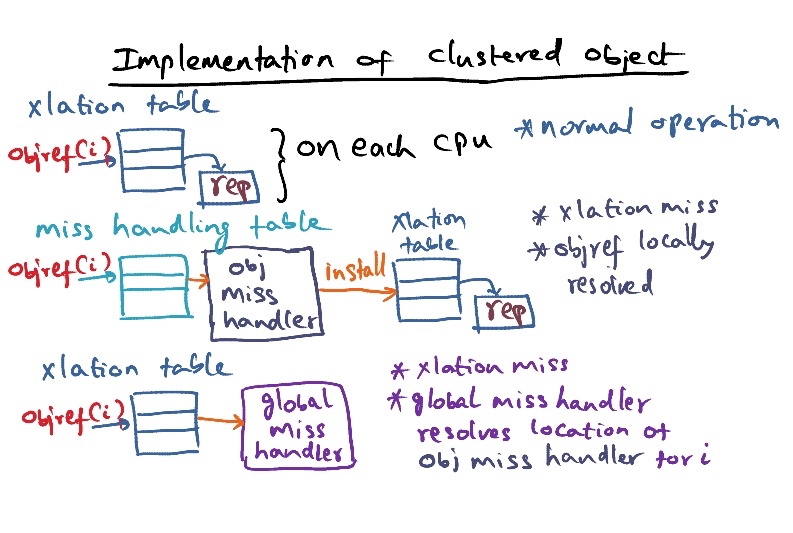 Implementation of clustered object
xlation table
objref(i)
rep
on each cpu
*normal operation
miss handling table
objref(i)
obj
miss
handler
install
xlation
table
rep
* xlation miss
* objref locally
resolved
xlation table
objref(i)
global
miss
handler
* xlation miss
* global miss handler
resolves location of
obj miss handler for i